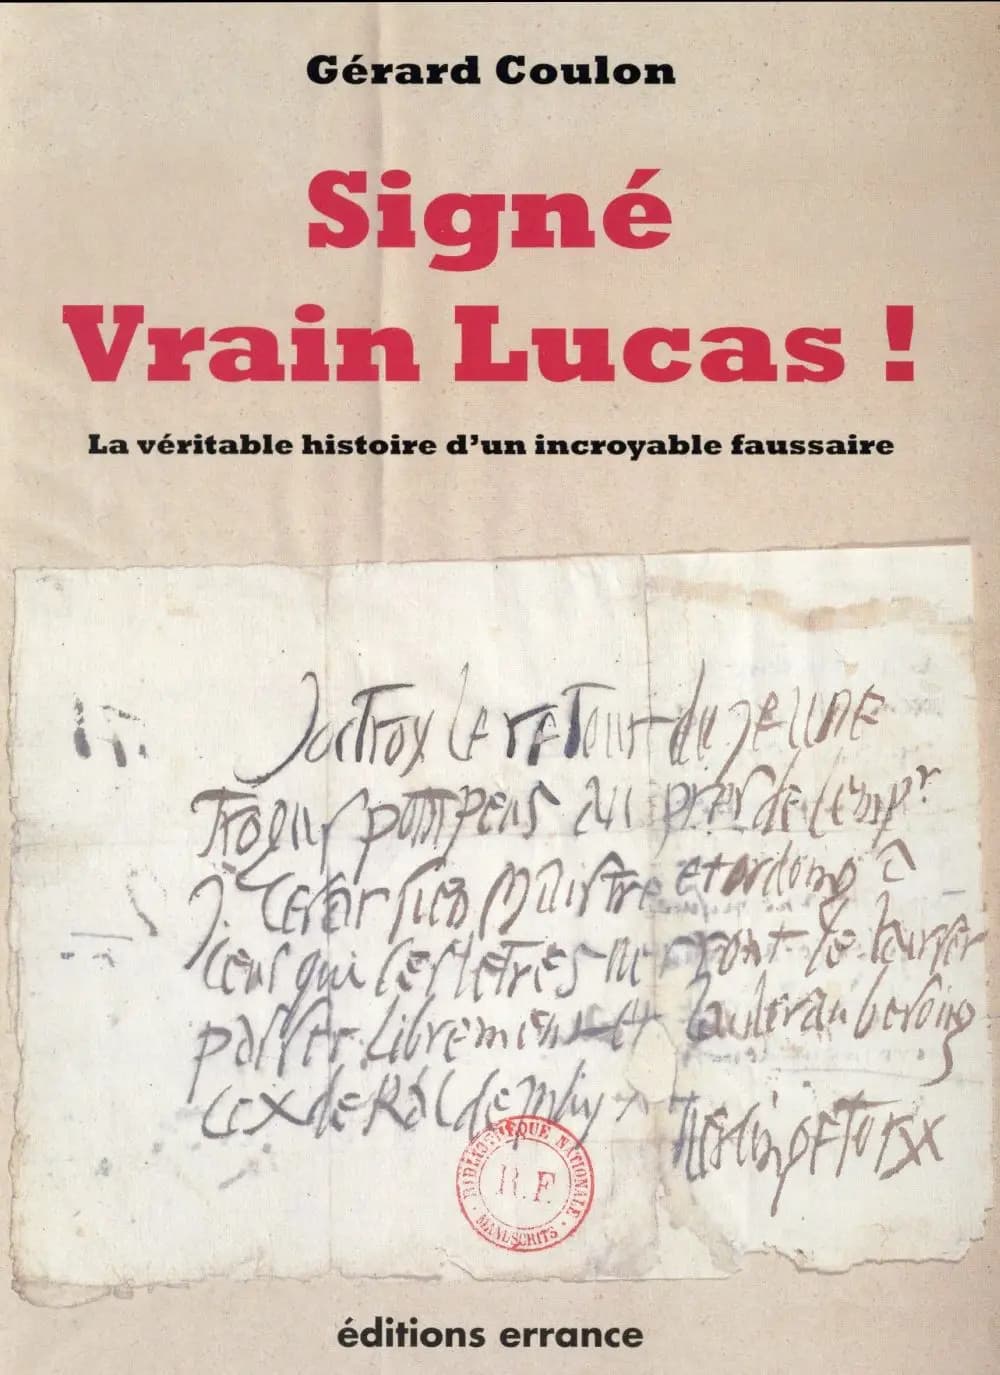 Gérard Coulon
Signé
Vrain Lucas !
La véritable histoire d'un incroyable faussaire
J'octroy le retour du jeune
Trogus pompeus au pres de l'emp.r
J. Cesar sien maistre et ordong à
ceus qui ces letres verront le laiser
passer librement et l'aider au besoing
Ce x de Kal de may
BIBLIOTHÈQUE NATIONALE
R.F.
MANUSCRITS
éditions errance